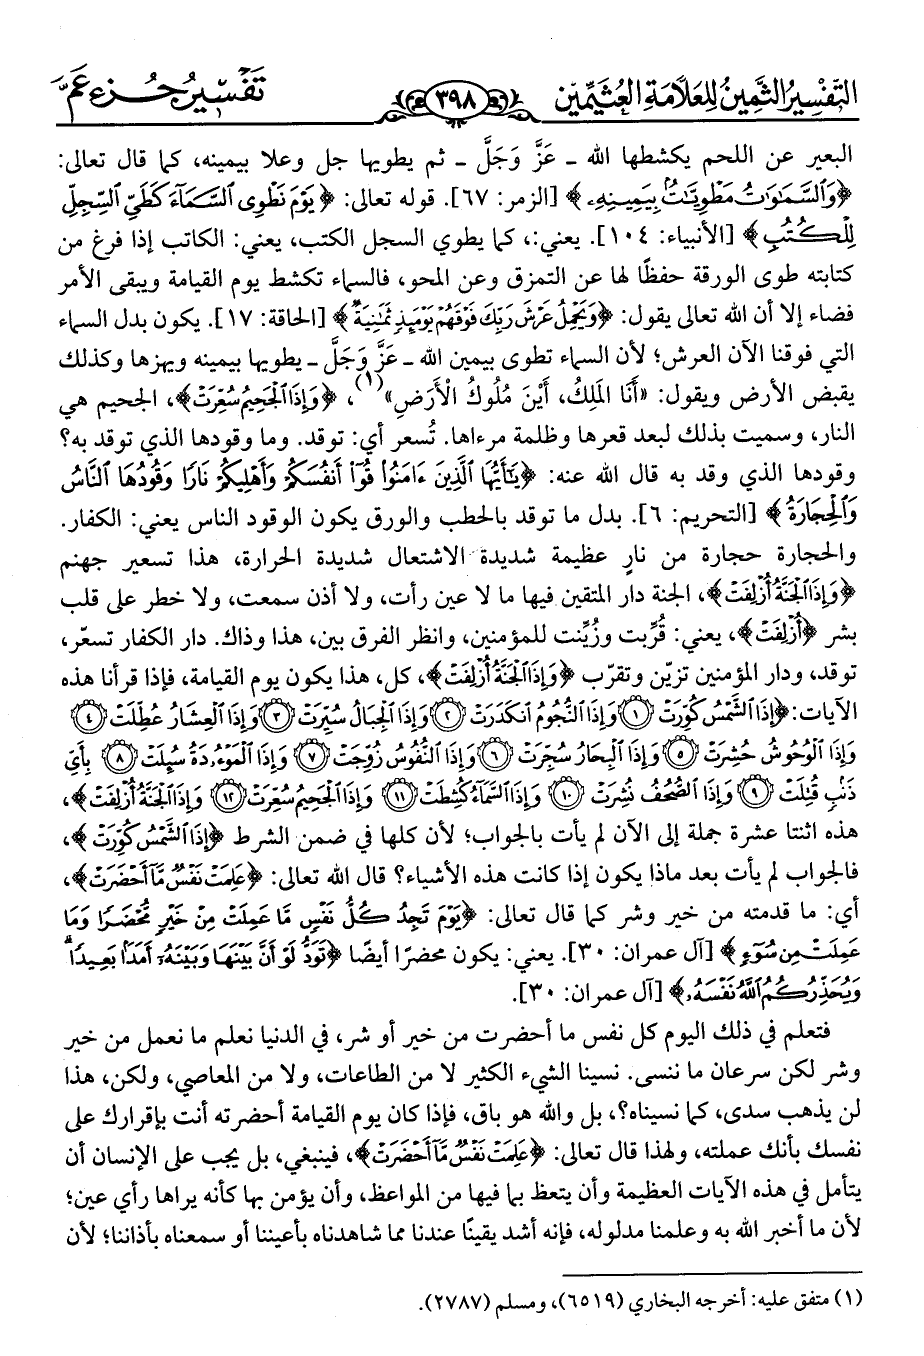 التفسير الثمين للعلامة العثيمين
٣٩٨
تفسير جزء عمَّ
البعير عن اللحم يكشطها الله ـ عَزَّ وَجَلَّ ـ ثم يطويها جل وعلا بيمينه، كما قال تعالى:
﴿وَالسَّمَاوَاتُ مَطْوِيَّاتٌ بِيَمِينِهِ﴾ [الزمر: ٦٧]. قوله تعالى: ﴿يَوْمَ نَطْوِى السَّمَآءَ كَطَىِّ السِّجِلِّ
لِلْكُتُبِ﴾ [الأنبياء: ١٠٤]. يعني:، كما يطوي السجل الكتب، يعني: الكاتب إذا فرغ من
كتابته طوى الورقة حفظًا لها عن التمزق وعن المحو، فالسماء تكشط يوم القيامة ويبقى الأمر
فضاء إلا أن الله تعالى يقول: ﴿وَيَحْمِلُ عَرْشَ رَبِّكَ فَوْقَهُمْ يَوْمَئِذٍ ثَمَٰنِيَةٌ﴾ [الحاقة: ١٧]. يكون بدل السماء
التي فوقنا الآن العرش؛ لأن السماء تطوى بيمين الله ـ عَزَّ وَجَلَّ ـ يطويها بيمينه ويهزها وكذلك
يقبض الأرض ويقول: «أَنَا الْمَلِكُ، أَيْنَ مُلُوكُ الْأَرَضِ»(١)، ﴿وَإِذَا الْجَحِيمُ سُعِّرَتْ﴾، الجحيم هي
النار، وسميت بذلك لبعد قعرها وظلمة مرءاها. تُسعر أي: توقد. وما وقودها الذي توقد به؟
وقودها الذي وقد به قال الله عنه: ﴿يَٰٓأَيُّهَا الَّذِينَ ءَامَنُوا۟ قُوٓا۟ أَنفُسَكُمْ وَأَهْلِيكُمْ نَارًا وَقُودُهَا النَّاسُ
وَالْحِجَارَةُ﴾ [التحريم: ٦]. بدل ما توقد بالحطب والورق يكون الوقود الناس يعني: الكفار.
والحجارة حجارة من نارٍ عظيمة شديدة الاشتعال شديدة الحرارة، هذا تسعير جهنم
﴿وَإِذَا الْجَنَّةُ أُزْلِفَتْ﴾، الجنة دار المتقين فيها ما لا عين رأت، ولا أذن سمعت، ولا خطر على قلب
بشر ﴿أُزْلِفَتْ﴾، يعني: قُرِّبت وزُيِّنت للمؤمنين، وانظر الفرق بين، هذا وذاك. دار الكفار تسعّر،
توقد، ودار المؤمنين تزيّن وتقرّب ﴿وَإِذَا الْجَنَّةُ أُزْلِفَتْ﴾، كل، هذا يكون يوم القيامة، فإذا قرأنا هذه
الآيات: ﴿إِذَا الشَّمْسُ كُوِّرَتْ ١ وَإِذَا النُّجُومُ انكَدَرَتْ ٢ وَإِذَا الْجِبَالُ سُيِّرَتْ ٣ وَإِذَا الْعِشَارُ عُطِّلَتْ ٤
وَإِذَا الْوُحُوشُ حُشِرَتْ ٥ وَإِذَا الْبِحَارُ سُجِّرَتْ ٦ وَإِذَا النُّفُوسُ زُوِّجَتْ ٧ وَإِذَا الْمَوْءُدَةُ سُئِلَتْ ٨ بِأَىِّ
ذَنۢبٍ قُتِلَتْ ٩ وَإِذَا الصُّحُفُ نُشِرَتْ ١٠ وَإِذَا السَّمَآءُ كُشِطَتْ ١١ وَإِذَا الْجَحِيمُ سُعِّرَتْ ١٢ وَإِذَا الْجَنَّةُ أُزْلِفَتْ﴾،
هذه اثنتا عشرة جملة إلى الآن لم يأت بالجواب؛ لأن كلها في ضمن الشرط ﴿إِذَا الشَّمْسُ كُوِّرَتْ﴾،
فالجواب لم يأت بعد ماذا يكون إذا كانت هذه الأشياء؟ قال الله تعالى: ﴿عَلِمَتْ نَفْسٌ مَّآ أَحْضَرَتْ﴾،
أي: ما قدمته من خير وشر كما قال تعالى: ﴿يَوْمَ تَجِدُ كُلُّ نَفْسٍ مَّا عَمِلَتْ مِنْ خَيْرٍ مُّحْضَرًا وَمَا
عَمِلَتْ مِن سُوٓءٍ﴾ [آل عمران: ٣٠]. يعني: يكون محضرًا أيضًا ﴿تَوَدُّ لَوْ أَنَّ بَيْنَهَا وَبَيْنَهُۥٓ أَمَدًۢا بَعِيدًا ۗ
وَيُحَذِّرُكُمُ اللَّهُ نَفْسَهُۥ﴾ [آل عمران: ٣٠].
فتعلم في ذلك اليوم كل نفس ما أحضرت من خير أو شر، في الدنيا نعلم ما نعمل من خير
وشر لكن سرعان ما ننسى. نسينا الشيء الكثير لا من الطاعات، ولا من المعاصي، ولكن، هذا
لن يذهب سدى، كما نسيناه؟، بل والله هو باق، فإذا كان يوم القيامة أحضرته أنت بإقرارك على
نفسك بأنك عملته، ولهذا قال تعالى: ﴿عَلِمَتْ نَفْسٌ مَّآ أَحْضَرَتْ﴾، فينبغي، بل يجب على الإنسان أن
يتأمل في هذه الآيات العظيمة وأن يتعظ بما فيها من المواعظ، وأن يؤمن بها كأنه يراها رأي عين؛
لأن ما أخبر الله به وعلمنا مدلوله، فإنه أشد يقينًا عندنا مما شاهدناه بأعيننا أو سمعناه بأذاننا؛ لأن
(١) متفق عليه: أخرجه البخاري (٦٥١٩)، ومسلم (٢٧٨٧).